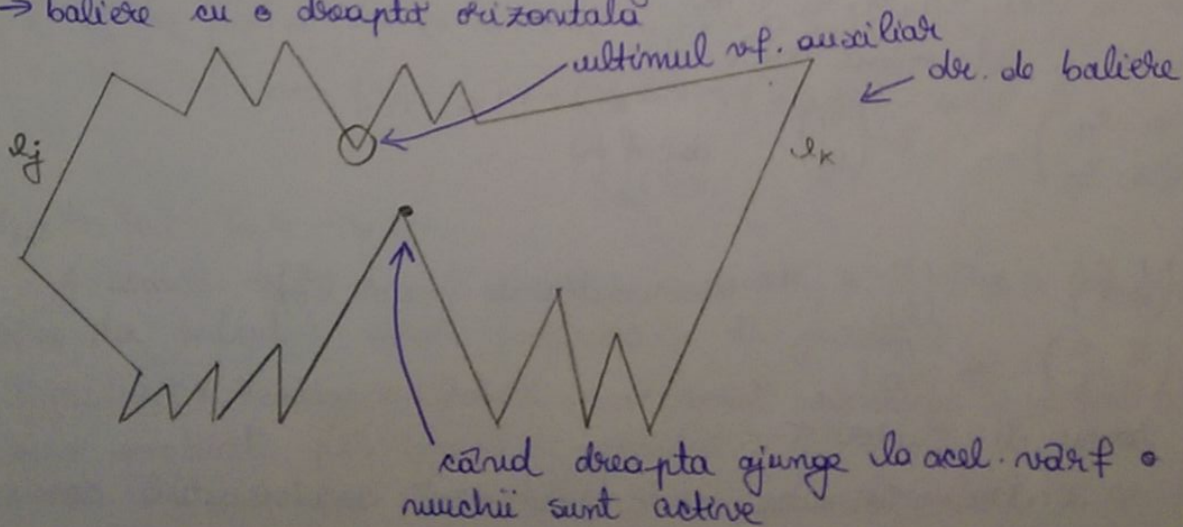 → baliere cu o dreaptă orizontală
ultimul vf. auxiliar
dr. de baliere
ej
ek
când dreapta ajunge la acel. vârf o
muchii sunt active